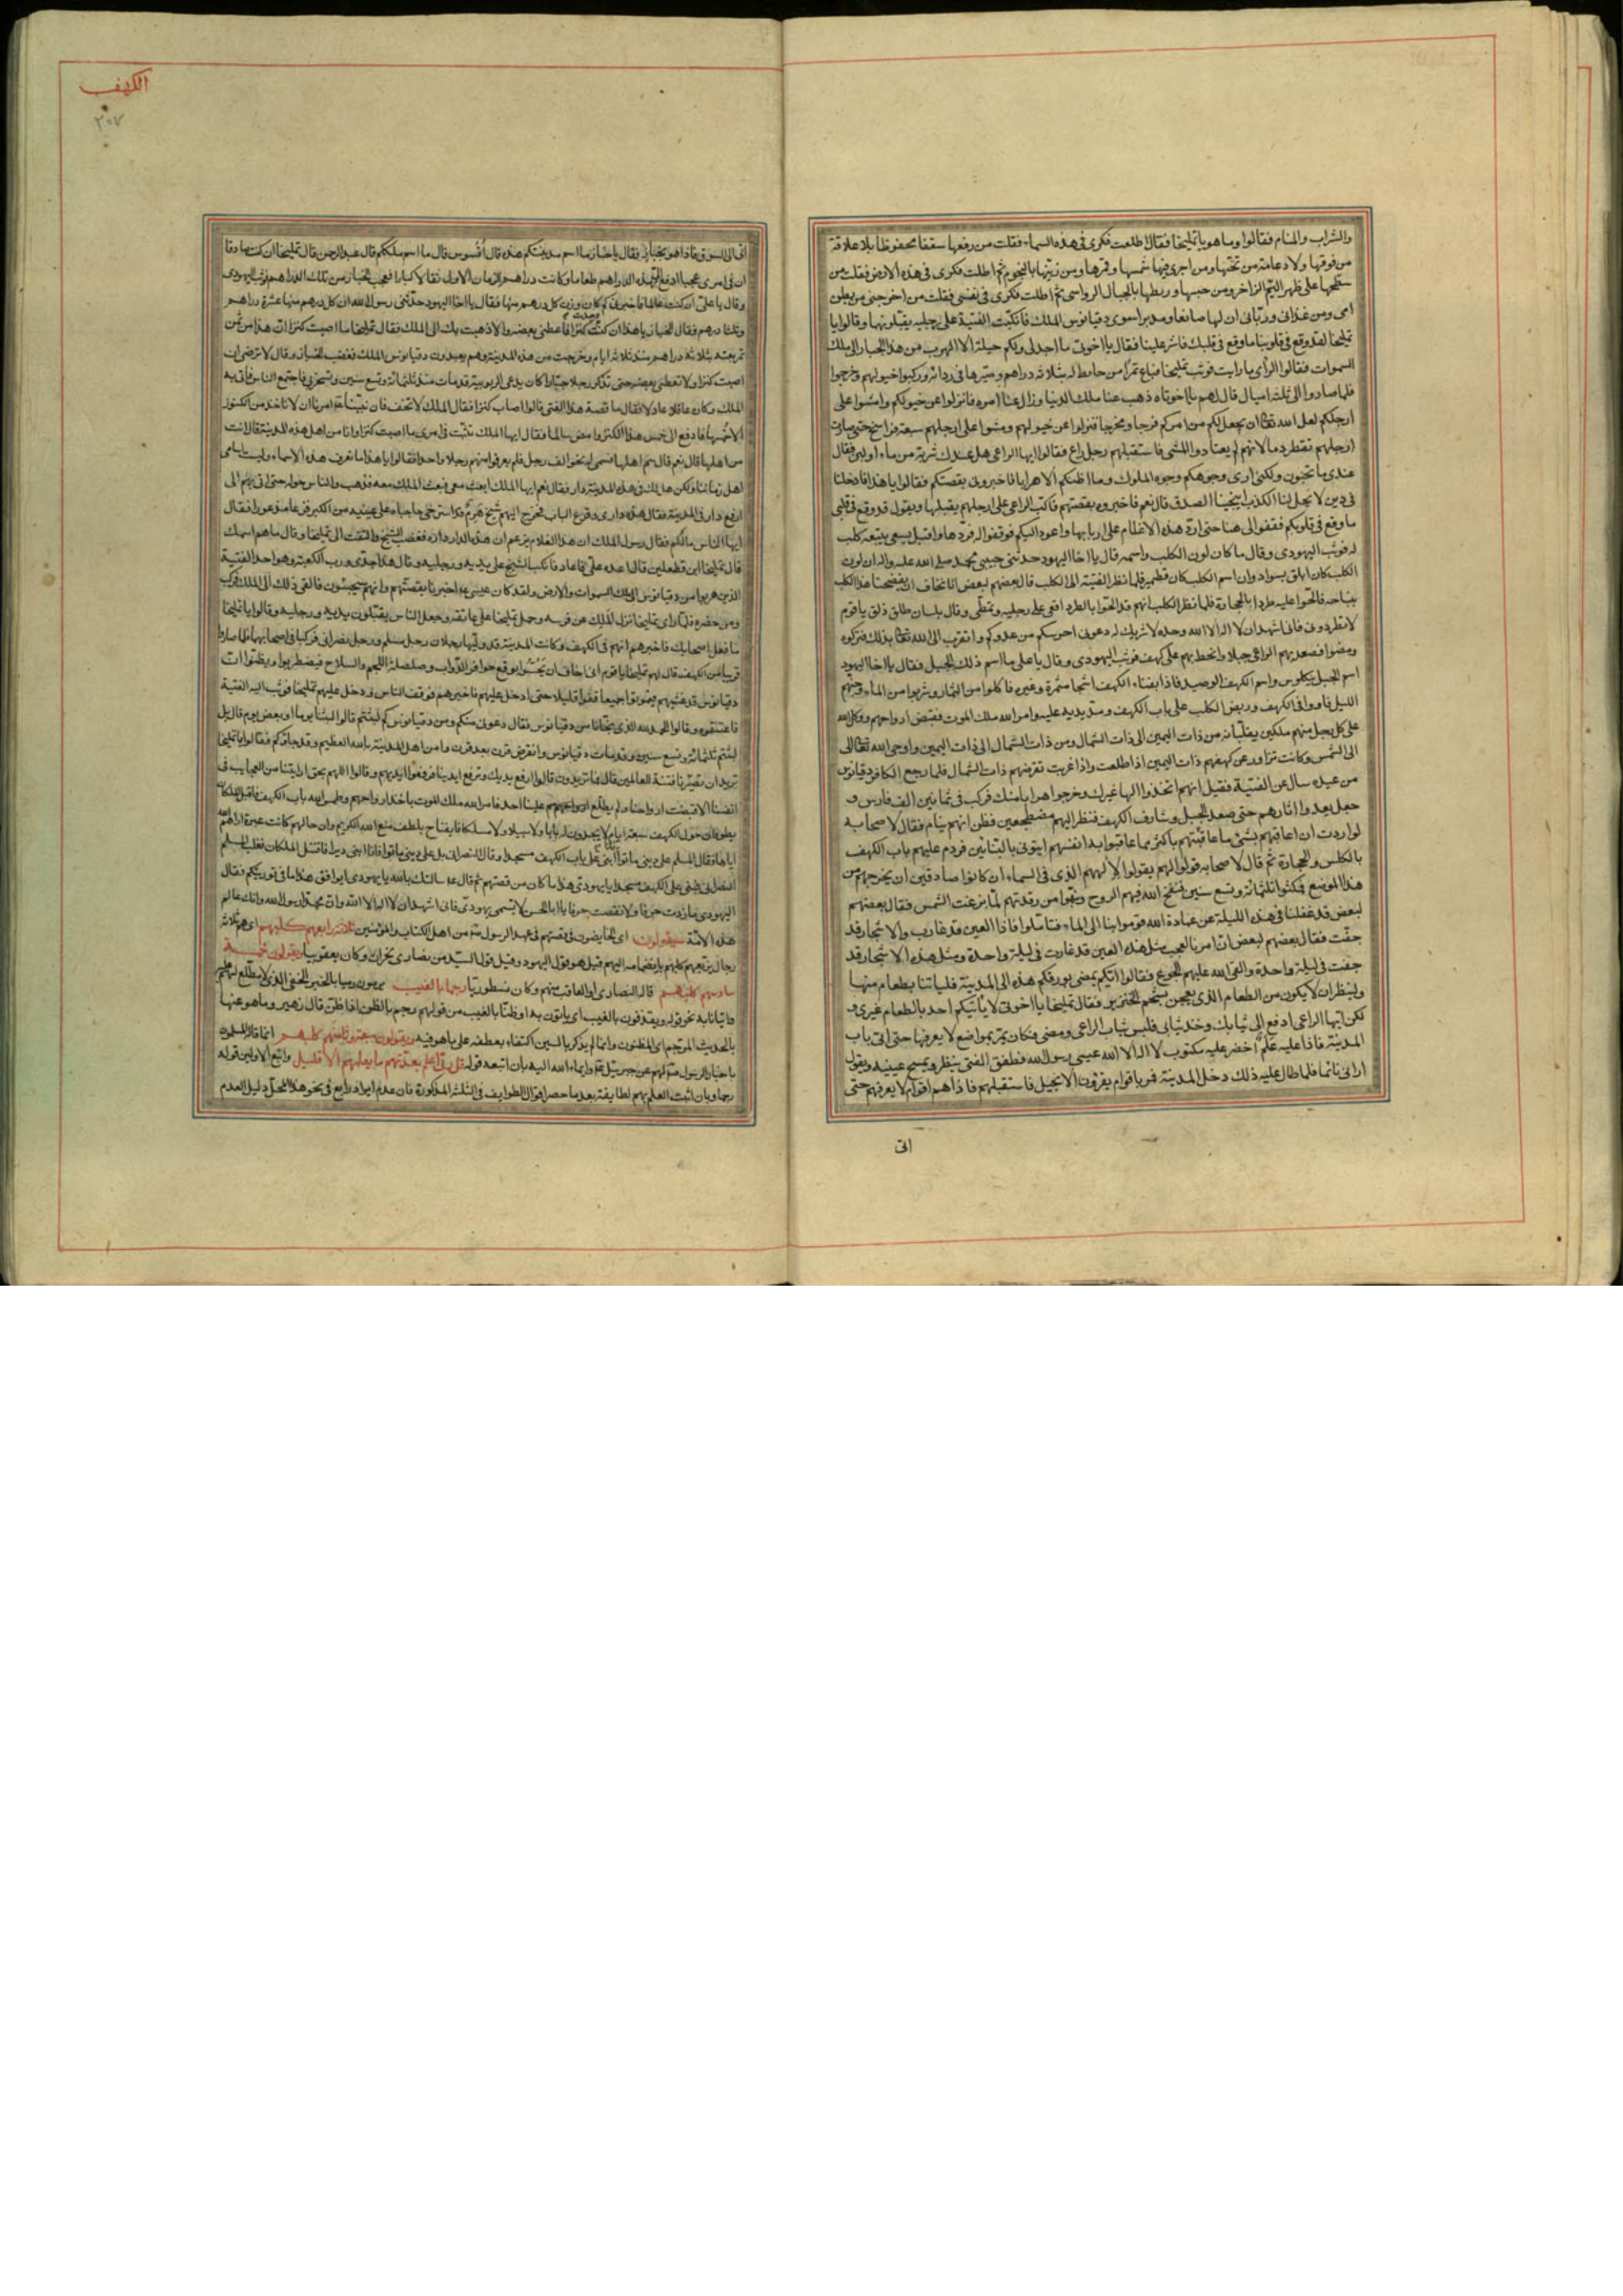 والشراب والمنام فقالوا وما هو يا تمليخا فقال اطلعت فكرى فى هذه السماء فقلت من رفعها سقفا محفوظا بلا علاقة
من فوقها ولا دعامة من تحتها ومن اجرى فيها شمسها وقمرها ومن زينها بالنجوم ثم اطلت فكرى فى هذه الارض فقلت من
سطحها على ظهر اليم الزاخر ومن حبسها وربطها بالجبال الرواسى ثم اطلت فكرى فى نفسى فقلت من اخرجنى من بطن
امى ومن غذانى وربانى ان لها صانعا ومدبرا سوى دقيانوس الملك فانكبت الفتية على رجليه يقبلونها وقالوا يا
تمليخا لقد وقع فى قلوبنا ما وقع فى قلبك فاشر علينا فقال يا اخوتى ما اجد لى ولكم حيلة الا الهرب من هذا الجبار الى ملك
السموات فقالوا الرأى ما رايت فوثب تمليخا فباع تمرا من حايط له بثلاثة دراهم وصرها فى ردائه وركبوا خيولهم وخرجوا
فلما صاروا الى ثلثة اميال قال لهم يا اخوتاه ذهب عنا ملك الدنيا وزال عنا امره فانزلوا عن خيولكم وامشوا على
ارجلكم لعل الله تعالى ان يجعل لكم من امركم فرجا ومخرجا فنزلوا عن خيولهم ومشوا على ارجلهم سبعة فراسخ حتى صارت
ارجلهم تقطر دما لانهم لم يعتادوا المشى فاستقبلهم رجل راع فقالوا ايها الراعى هل عندك شربة من ماء او لبن فقال
عندى ما تحبون ولكنى ارى وجوهكم وجوه الملوك وما اظنكم الا هرابا فاخبرونى بقصتكم فقالوا يا هذا انا دخلنا
فى دين لا يحل لنا الكذب اينجينا الصدق قال نعم فاخبروه بقصتهم فاكب الراعى على ارجلهم يقبلها ويقول قد وقع فى قلبى
ما وقع فى قلوبكم فقفوا لى هنا حتى ارد هذه الاغنام على اربابها واعود اليكم فوقفوا له فردها واقبل يسعى يتبعه كلب
له فوثب اليهودى وقال ما كان لون الكلب واسمه قال يا اخا اليهود حدثنى حبيبى محمد صلى الله عليه واله ان لون
الكلب كان ابلق بسواد وان اسم الكلب كان قطمير فلما نظر الفتية الى الكلب قال بعضهم لبعض انا نخاف ان يفضحنا هذا الكلب
بنباحه فالحوا عليه طردا بالحجارة فلما نظر الكلب انهم قد الحوا بالطرد اقعى على رجليه وتمطى وقال بلسان طلق ذلق يا قوم
لا تطردونى فانى اشهد ان لا اله الا الله وحده لا شريك له دعونى احرسكم من عدوكم واتقرب الى الله تعالى بذلك فتركوه
ومضوا فصعد بهم الراعى جبلا وانحط بهم على كهف فوثب اليهودى وقال يا على ما اسم ذلك الجبل فقال يا اخا اليهود
اسم الجبل بيكلوس واسم الكهف الوصيد فاذا بفناء الكهف اشجار مثمرة وعين فاكلوا من الثمار وشربوا من الماء وجنهم
الليل فاووا فى الكهف وربض الكلب على باب الكهف ومد يديه عليه وامر الله ملك الموت فقبض ارواحهم ووكل الله
على كل رجل منهم ملكين يقلبانه من ذات اليمين الى ذات الشمال ومن ذات الشمال الى ذات اليمين واوحى الله تعالى
الى الشمس وكانت تزاور عن كهفهم ذات اليمين اذا طلعت واذا غربت تقرضهم ذات الشمال فلما رجع الكافر دقيانوس
من عيده سال عن الفتية فقيل انهم اتخذوا الها غيرك وخرجوا هرابا منك فركب فى ثمانين الف فارس و
جعل يعدوا اثارهم حتى صعد الجبل وشارف الكهف فنظر اليهم مضطجعين فظن انهم نيام فقال لاصحابه
لو اردت ان اعاقبهم بشئ ما عاقبتهم باكثر مما عاقبوا به انفسهم ايتونى بالبنائين فردم عليهم باب الكهف
بالكلس والحجارة ثم قال لاصحابه قولوا لهم يقولوا لالههم الذى فى السماء ان كانوا صادقين ان يخرجهم من
هذا الموضع فمكثوا ثلثمائة وتسع سنين فنفخ الله فيهم الروح وهبوا من رقدتهم لما بزغت الشمس فقال بعضهم
لبعض قد غفلنا فى هذه الليلة عن عبادة الله قوموا بنا الى الماء فتاملوا فاذا العين قد غارت والاشجار قد
جفت فقال بعضهم لبعض ان امرنا لعجب مثل هذه العين قد غارت فى ليلة واحدة ومثل هذه الاشجار قد
جفت فى ليلة واحدة والقى الله عليهم الجوع فقالوا ايكم يمضى بورقكم هذه الى المدينة فلياتنا بطعام منها
ولينظر ان لا يكون من الطعام الذى يعجن بشحم الخنزير فقال تمليخا يا اخوتى لا ياتيكم احد بالطعام غيرى و
لكن ايها الراعى ادفع الى ثيابك وخذ ثيابى فلبس ثياب الراعى ومضى فكان يمر بمواضع لا يعرفها حتى اتى باب
المدينة فاذا عليه علم اخضر عليه مكتوب لا اله الا الله عيسى رسول الله فطفق الفتى ينظر ويمسح عينيه ويقول
ارانى نائما فلما طال عليه ذلك دخل المدينة فمر باقوام يقرؤن الانجيل فاستقبلهم فاذا هم اقوام لا يعرفهم حتى
اتى
الكهف
٣٠٧
اتى الى السوق فاذا هو بخباز فقال يا خباز ما اسم مدينتكم هذه قال أفسوس قال ما اسم ملككم قال عبد الرحمن قال تمليخا ان كنت صادقا
ان فى امرى عجبا ادفع الى بهذه الدراهم طعاما وكانت دراهم الزمان الاول ثقالا كبارا فعجب الخباز من تلك الدراهم فوثب اليهودى
وقال يا على ان كنت عالما فاخبرنى كم كان وزن كل درهم منها فقال يا اخا اليهود حدثنى رسول الله ان كل درهم منها عشرة دراهم
وثلثا درهم فقال الخباز يا هذا ان كنت اصبت كنزا فاعطنى بعضه والا ذهبت بك الى الملك فقال تمليخا ما اصبت كنزا ان هذا من ثمن
تمر بعته بثلاثة دراهم منذ ثلاثة ايام وخرجت من هذه المدينة وهم يعبدون دقيانوس الملك فغضب الخباز وقال لا ترضى ان
اصبت كنزا ولا تعطنى بعضه حتى تذكر رجلا جبارا كان يدعى الربوبية قد مات منذ ثلثمائة وتسع سنين وتسخر بى فاجتمع الناس فاتى به
الملك وكان عاقلا عادلا فقال ما قصة هذا الفتى قالوا اصاب كنزا فقال الملك لا تخف فان نبينا امرنا ان لا ناخذ من الكنوز
الا خمسها فادفع الى خمس هذا الكنز وامض سالما فقال ايها الملك تثبت فى امرى ما اصبت كنزا وانا من اهل هذه المدينة قال انت
من اهلها قال نعم قال سم اهلها فسمى له نحو الف رجل فلم يعرفوا منهم رجلا واحدا فقالوا يا هذا ما نعرف هذه الاسماء وليست اسامى
اهل زماننا ولكن هل لك فى هذه المدينة دار فقال نعم ايها الملك ابعث معى فبعث الملك معه فذهب والناس حوله حتى اتى بهم الى
ارفع دار فى المدينة فقال هذه دارى وقرع الباب فخرج اليهم شيخ هرم قد استرخى حاجباه على عينيه من الكبر فزعا مذعورا فقال
ايها الناس ما لكم فقال رسول الملك ان هذا الغلام يزعم ان هذه الدار داره فغضب الشيخ والتفت الى تمليخا وقال ما هم اسمك
قال تمليخا ابن قطعلين قال اعده على فاعاد فانكب الشيخ على يديه ورجليه وقال هذا جدى ورب الكعبة وهو احد الفتية
الذين هربوا من دقيانوس الى ملك السموات والارض ولقد كان عيسى اخبرنا بقصتهم وانهم سيحيون فالقى ذلك الى الملك فركب
ومن حضره فلما راى تمليخا نزل الملك عن فرسه وحمل تمليخا على عاتقه وجعل الناس يقبلون يديه ورجليه وقالوا يا تمليخا
ما فعل اصحابك فاخبرهم انهم فى الكهف وكانت المدينة قد وليها رجلان رجل مسلم ورجل نصرانى فركبا فى اصحابهما فلما صاروا
قريبا من الكهف قال لهم تمليخا يا قوم انى اخاف ان يحسوا بوقع حوافر الدواب وصلصلة اللجم والسلاح فيضطربوا ويظنوا ان
دقيانوس قد غشيهم فيموتوا جميعا فقفوا قليلا حتى ادخل عليهم فاخبرهم فوقف الناس ودخل عليهم تمليخا فوثب اليه الفتية
فاعتنقوه وقالوا الحمد لله الذى نجانا من دقيانوس فقال دعونى منكم ومن دقيانوس كم لبثتم قالوا لبثنا يوما او بعض يوم قال بل
لبثتم ثلثمائة وتسع سنين وقد مات دقيانوس وانقرض قرن بعد قرن وامن اهل المدينة بالله العظيم وقد جاؤكم فقالوا يا تمليخا
تريد ان تصيرنا فتنة للعالمين قال فما تريدون قالوا ارفع يديك ونرفع ايدينا فرفعوا ايديهم وقالوا اللهم بحق ما اريتنا من العجايب فى
انفسنا الا قبضت ارواحنا ولم يطلع علينا احد فامر الله ملك الموت باخذ ارواحهم وطمس الله باب الكهف فاقبل الملكان
يطوفان حول الكهف سبعة ايام لا يجدون له بابا ولا سبيلا ولا مسلكا فايقنا ح بلطف صنع الله الكريم وان حالهم كانت عبرة اراهم الله
اياها فقال المسلم على دينى ماتوا ابنى على باب الكهف مسجدا وقال النصرانى بل على دينى ماتوا فانا ابنى ديرا فاقتتل الملكان فغلب المسلم
النصرانى فبنى على الكهف مسجدا يا يهودى هذا ما كان من قصتهم ثم قال سالتك بالله يا يهودى ايوافق هذا ما فى توريتكم فقال
اليهودى ما زدت حرفا ولا نقصت حرفا يا ابا الحسن لا تسمنى يهوديا فانى اشهد ان لا اله الا الله وان محمدا رسول الله وانك عالم
هذه الامة سيقولون اى الخايضون فى قصتهم فى عهد الرسول من اهل الكتاب والمؤمنين ثلاثة رابعهم كلبهم اى هم ثلاثة
رجال يربعهم كلبهم بانضمامه اليهم قيل هو قول اليهود وقيل قول السيد من نصارى نجران وكان يعقوبيا ويقولون خمسة
سادسهم كلبهم قاله النصارى او العاقب منهم وكان نسطوريا رجما بالغيب يرمون رميا بالخبر الخفى الذى لا مطلع لهم عليه
واتيانا به نحو قوله ويقذفون بالغيب اى ياتون به او ظنا بالغيب من قولهم رجم بالظن اذا ظن قال زهير وما هو عنها
بالحديث المرجم اى المظنون وانما لم يذكر بالسين اكتفاء بعطفه على ما هو فيه ويقولون سبعة وثامنهم كلبهم انما قاله المسلمون
باخبار الرسول لهم عن جبريل وايماء الله اليه بان اتبعه قوله قل ربى اعلم بعدتهم ما يعلمهم الا قليل واتبع الاولين قوله
رجما وبان اثبت العلم بهم لطايفة بعد ما حصر اقوال الطوايف فى الثلثة المذكورة فان عدم ايراد رابع فى نحو هذا المحل دليل العدم